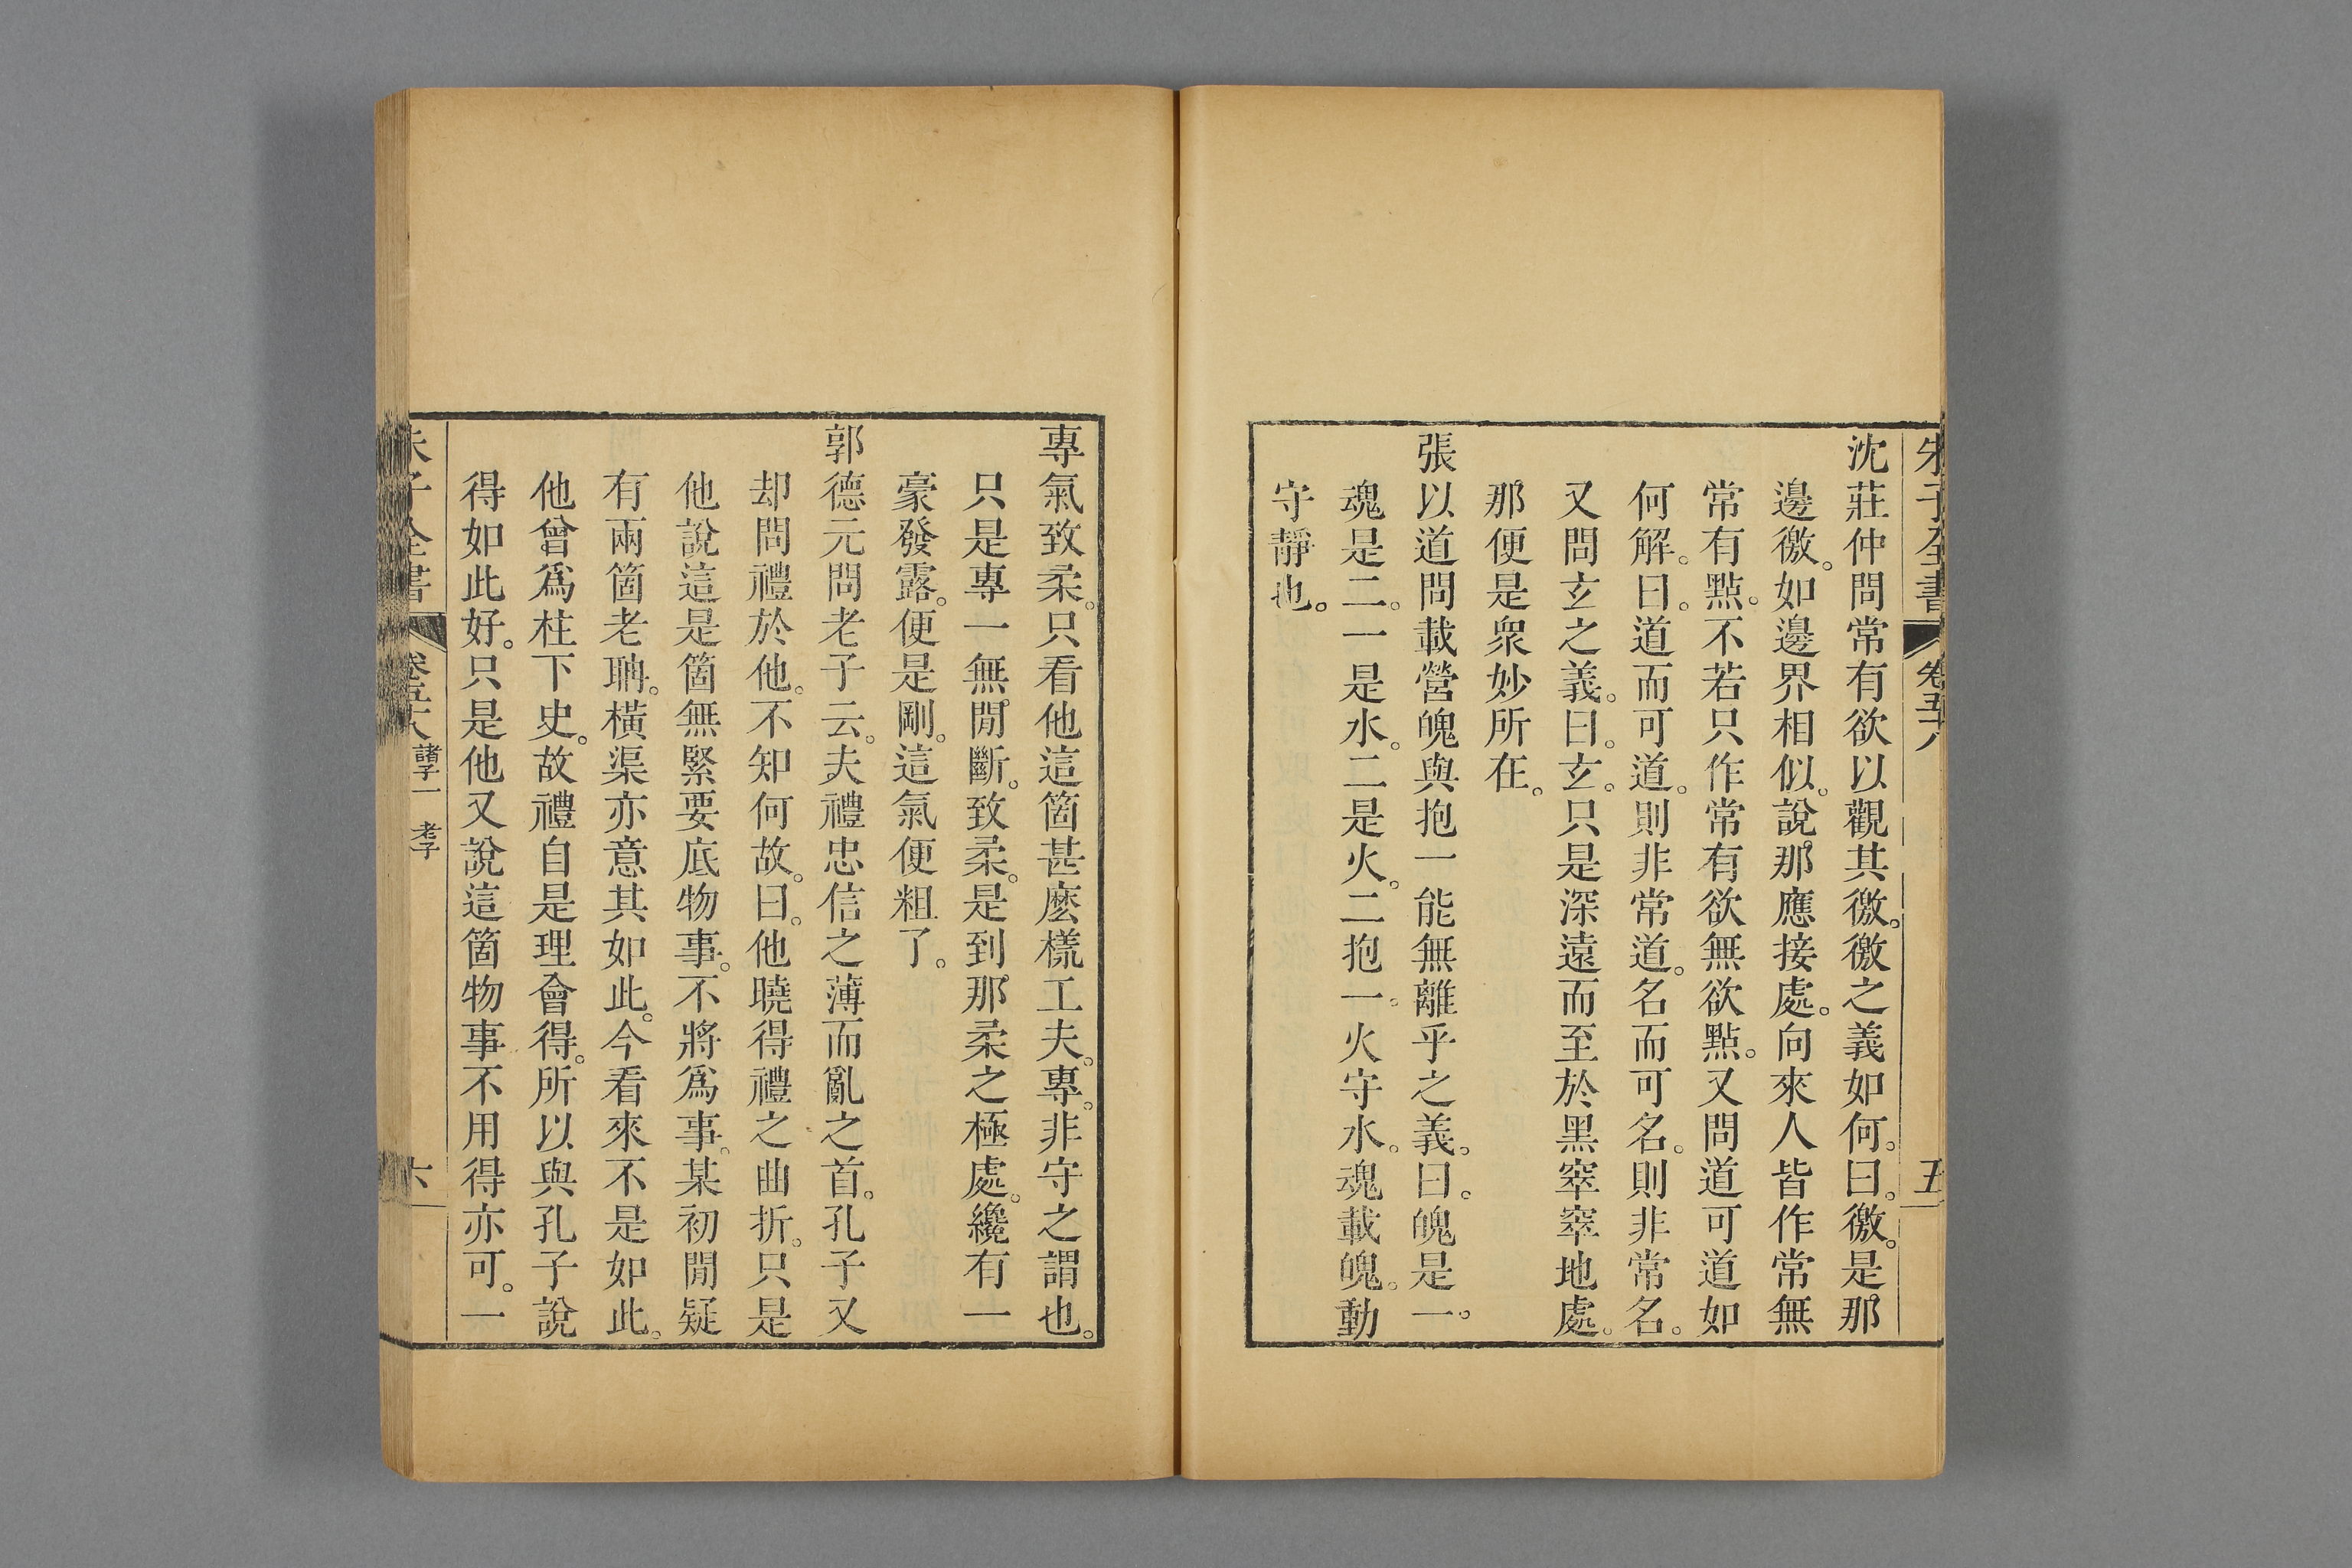 朱子全書 卷五十八 五
沈莊仲問常有欲以觀其徼。徼之義如何。曰。徼。是那
邊徼。如邊界相似。說那應接處。向來人皆作常無
常有點。不若只作常有欲無欲點。又問道可道如
何解。曰。道而可道。則非常道。名而可名。則非常名。
又問玄之義。曰。玄。只是深遠而至於黑窣窣地處。
那便是衆妙所在。
張以道問載營魄與抱一能無離乎之義。曰。魄是一。
魂是二。一是水。二是火。二抱一。火守水。魂載魄。動
守靜也。
專氣致柔。只看他這箇甚麼樣工夫。專。非守之謂也。
只是專一無閒斷。致柔。是到那柔之極處。纔有一
豪發露。便是剛。這氣便粗了。
郭德元問老子云。夫禮忠信之薄而亂之首。孔子又
却問禮於他。不知何故。曰。他曉得禮之曲折。只是
他說這是箇無緊要底物事。不將爲事。某初閒疑
有兩箇老聃。橫渠亦意其如此。今看來不是如此。
他曾爲柱下史。故禮自是理會得。所以與孔子說
得如此好。只是他又說這箇物事不用得亦可。一
朱子全書 卷五十八 諸子一 老子 六